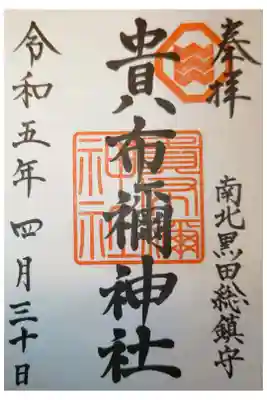 奉拝
南北黒田総鎮守
貴布禰神社
令和五年四月三十日